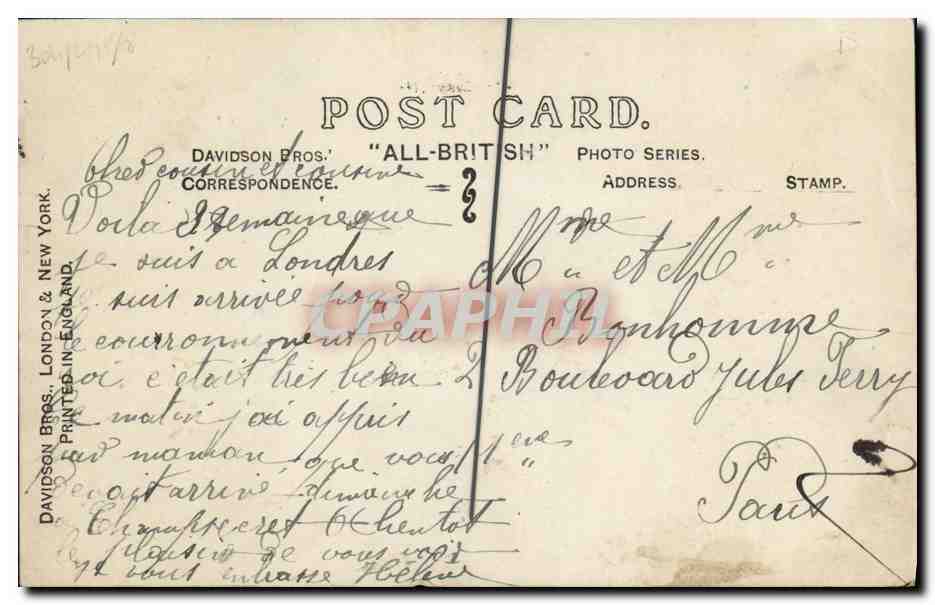 POST CARD.
DAVIDSON BROS.' "ALL-BRITISH" PHOTO SERIES.
CORRESPONDENCE. ADDRESS. STAMP.
DAVIDSON BROS., LONDON & NEW YORK.
PRINTED IN ENGLAND.
Cher cousin et cousine
Voila semaine que
je suis a Londres
suis arrivée pour
le courronnement du
roi c'était très bien
ce matin j'ai appris
par maman que vous
devait arrivé dimanche
a Champsecret
le plaisir de vous voir
vous embrasse Hélène
Mme et Mme
Bonhomme
2 Boulevard Jules Ferry
Paris
CPAPHIL